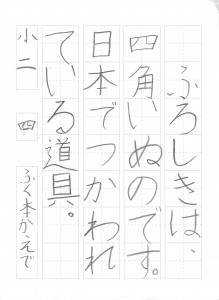 ふろしきは、
四角いぬのです。
日本でつかわれ
ている道具。
小二 四 ふく本かえで